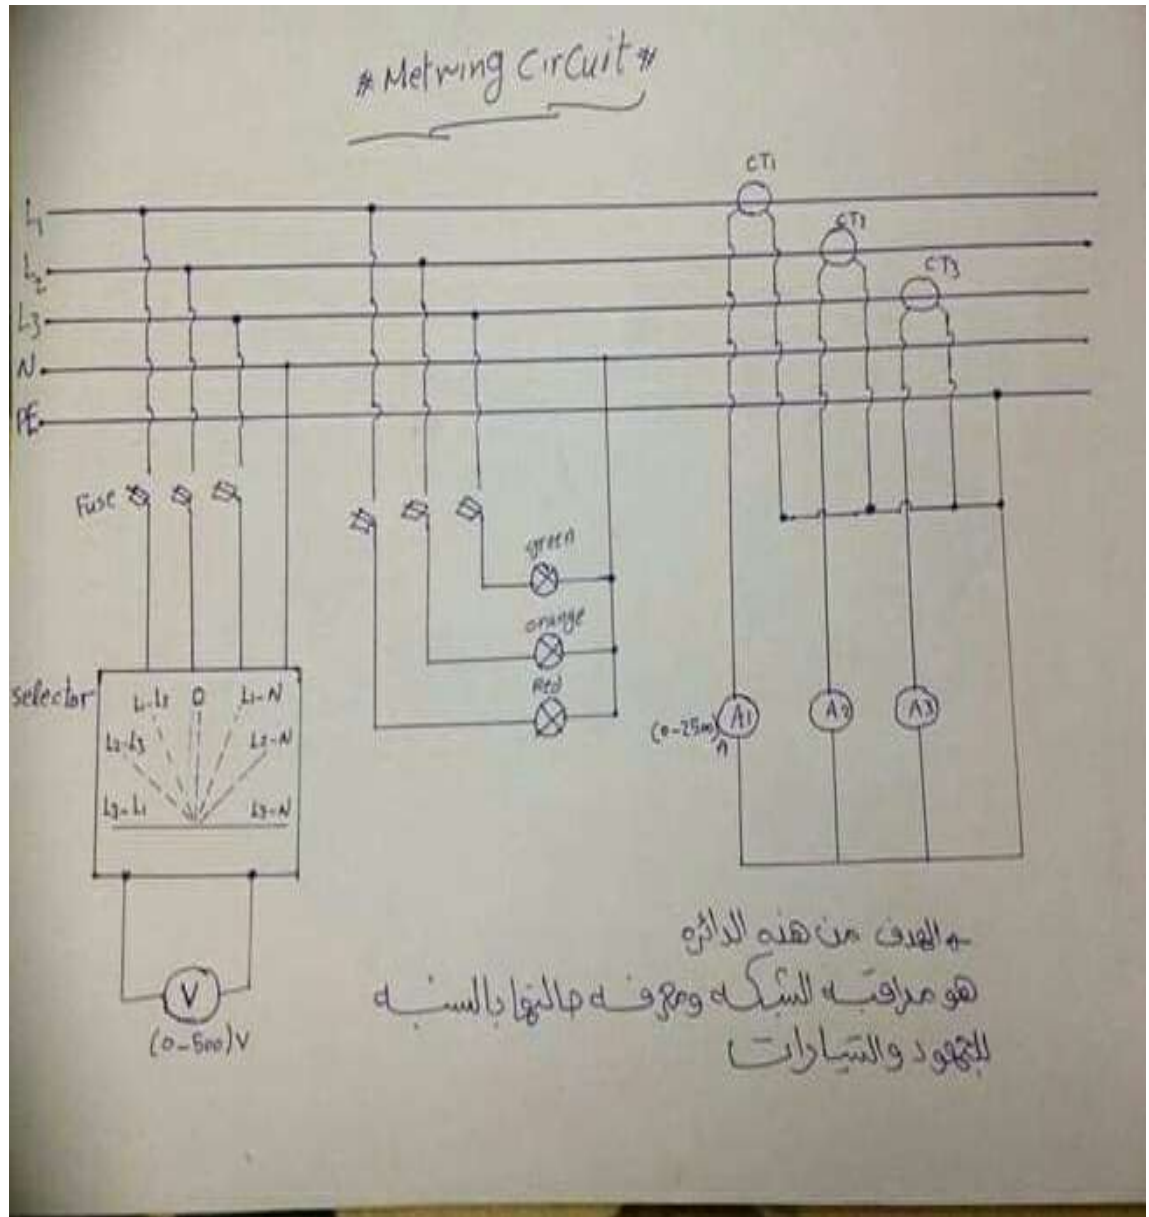 # Metring Circuit #
CT1
CT2
CT3
L1
L2
L3
N
PE
Fuse
green
orange
Red
selector
L1-L2 0 L1-N
L2-L3 L2-N
L3-L1 L3-N
(0-2500)
A
A1 A2 A3
V
(0-500)V
الهدف من هذه الدائره
هو مراقبه الشبكه ومعرفه حالتها بالنسبه
للجهود والتيارات